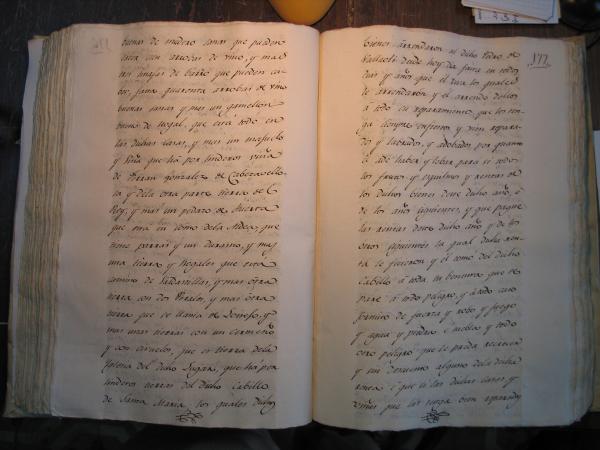 buenas de madera sanas que pueden
cien con arrobas de vino, y mas
tres tinajas de barro que pueden ca-
ber, fasta quarenta arrobas de vino
buenas sanas y mas un gamellon
bueno de nogal, que está todo en
las dichas casas, y mas un majuelo
y viña que ha por linderos viña
de Ferran Gonzalez de
ta y dela otra parte tierra de
hoy, y mas un pedazo de huerta
que está en somo dela Aldea, que
tiene parras y un durazno, y mas
una tierra y Nogales que está
camino de y mas otra
tierra con dos Perales, y mas otra
tierra que se llama de y
mas unas tierras con un
y con ciruelos, que es tierra dela
Iglesia del dicho Lugar, que ha por
linderos tierras del Dicho Cabildo
de Santa Maria los quales dichos
177
bienes arrendaron al dicho Pedro de
desde hoy dia fasta en todos
dias y años que él viva los quales
le arrendaron y él arrendó dellos
á todo su aparamiento que los ten-
ga siempre enfiestos y bien repara-
dos y labrados, y adobados por quanto
él ha de haber y lebar para si todos
los frutos y esquilmos y rentas de
los dichos bienes deste dicho año, é
de los años siguientes, y que pague
las rentas deste dicho año y de los
otros siguientes la qual dicha ren-
ta le ficieron y él tomó del dicho
Cabildo á toda su bentura que le
pare á todo peligro, y á todo caso
fortuito de fuerza y robo, y fuego
y agua y piedra é niebla y todo
otro peligro que le pueda recrecer
y sin descuento alguno dela dicha
renta é que si las dichas casas y
viñas que las tenga bien reparadas